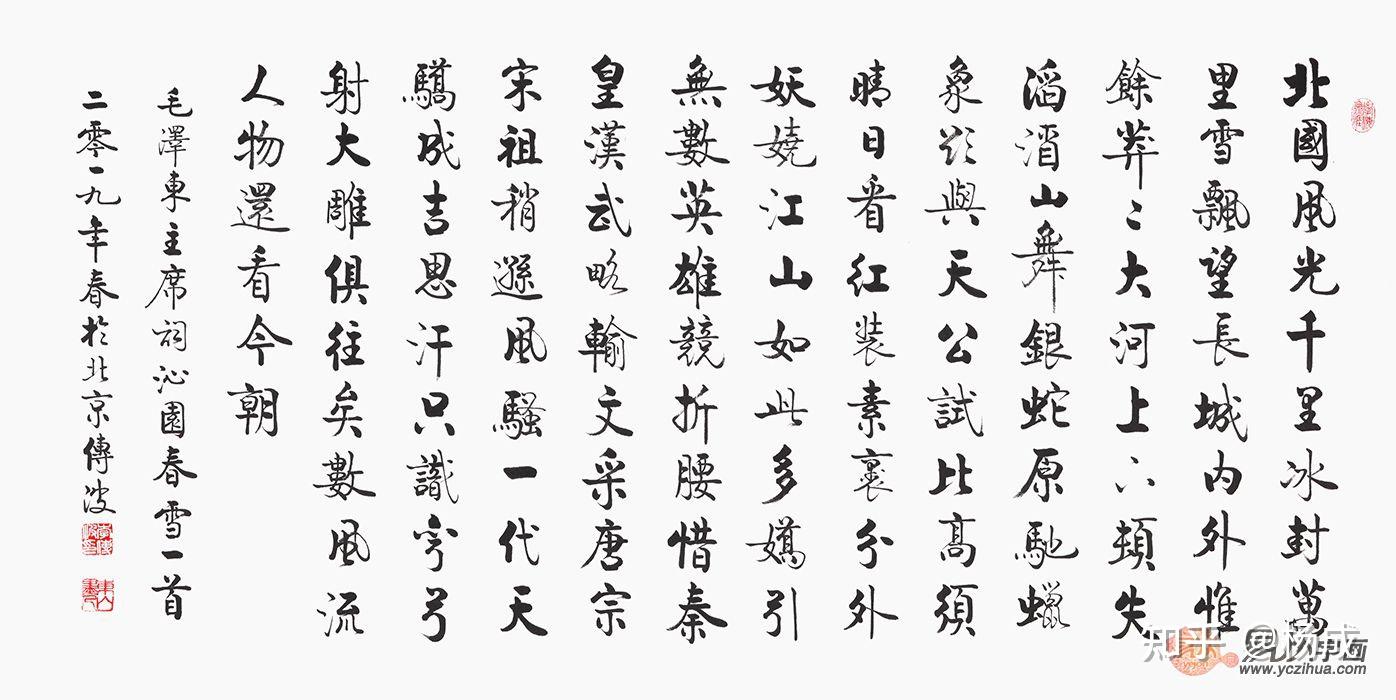 北國風光千里冰封萬
里雪飄望長城内外惟
餘莽〻大河上下頓失
滔滔山舞銀蛇原馳蠟
象欲與天公試比高須
晴日看紅裝素裹分外
妖嬈江山如此多嬌引
無數英雄競折腰惜秦
皇漢武略輸文采唐宗
宋祖稍遜風騷一代天
驕成吉思汗只識彎弓
射大雕俱往矣數風流
人物還看今朝
毛澤東主席詞沁園春雪一首
二零一九年春於北京傳波
知乎 @杨成
www.yczihua.com